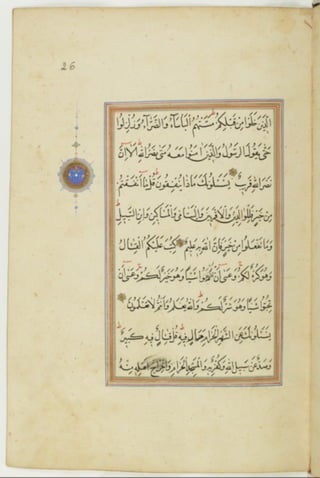 26
الذين خلوا من قبلكم مستهم البأساء والضراء وزلزلوا
حتى يقول الرسول والذين امنوا معه متى نصر الله الا ان
نصر الله قريب يسئلونك ماذا ينفقون قل ما انفقتم
من خير فللوالدين والاقربين واليتامى والمساكين وابن السبيل
وما تفعلوا من خير فان الله به عليم كتب عليكم القتال
وهو كره لكم وعسى ان تكرهوا شيئا وهو خير لكم وعسى ان
تحبوا شيئا وهو شر لكم والله يعلم وانتم لا تعلمون
يسئلونك عن الشهر الحرام قتال فيه قل قتال فيه كبير
وصد عن سبيل الله وكفر به والمسجد الحرام واخراج اهله منه